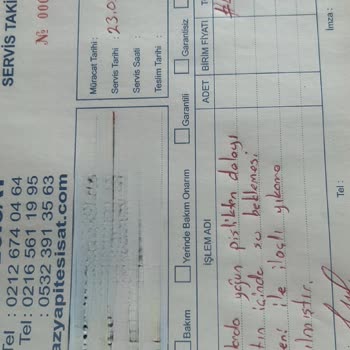 SERVİS TAKİ
№ 000
Tel : 0212 674 04 64
Tel : 0216 561 19 95
: 0532 391 35 63
azyapitesisat.com
Müracat Tarihi :
Servis Tarihi : 23.0
Servis Saati :
Teslim Tarihi :
Bakım
Yerinde Bakım Onarım
Garantili
Garantisiz
İŞLEM ADI
ADET
BİRİM FİYATI
yoğun pislikten dolayı
içinde su beklemesi
ile ilaçlı yıkama
Tel :
İmza :